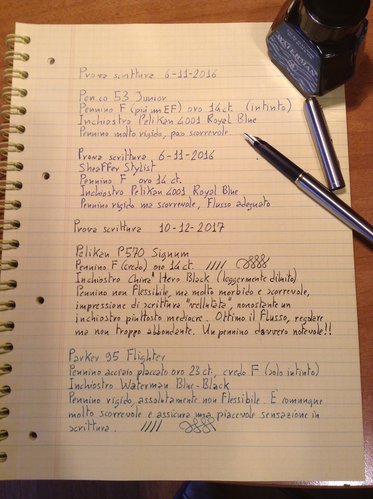 WATERMAN
Prova scrittura 6-11-2016
Penco 53 Junior
Pennino F (più un EF) oro 14 ct. (intinto)
Inchiostro Pelikan 4001 Royal Blue
Pennino molto rigido, poco scorrevole.
Prova scrittura 6-11-2016
Sheaffer Stylist
Pennino F oro 14 ct.
Inchiostro Pelikan 4001 Royal Blue
Pennino rigido ma scorrevole, Flusso adeguato
Prova scrittura 10-12-2017
Pelikan P570 Signum
Pennino F (credo) oro 14 ct.
Inchiostro China Hero Black (leggermente diluito)
Pennino non flessibile, ma molto morbido e scorrevole,
impressione di scrittura "vellutata", nonostante un
inchiostro piuttosto mediocre. Ottimo il flusso, regolare
ma non troppo abbondante. Un pennino davvero notevole!!
Parker 95 Flighter
Pennino acciaio placcato oro 23 ct., credo F (solo intinto)
Inchiostro Waterman Blue-Black
Pennino rigido, assolutamente non flessibile. E' comunque
molto scorrevole e assicura una piacevole sensazione in
scrittura.